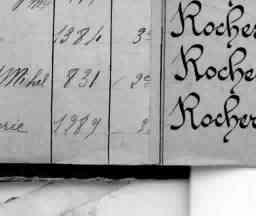 1384 3e Rocher
Mihal 831 2e Roche
rie 1989 3 Rocher